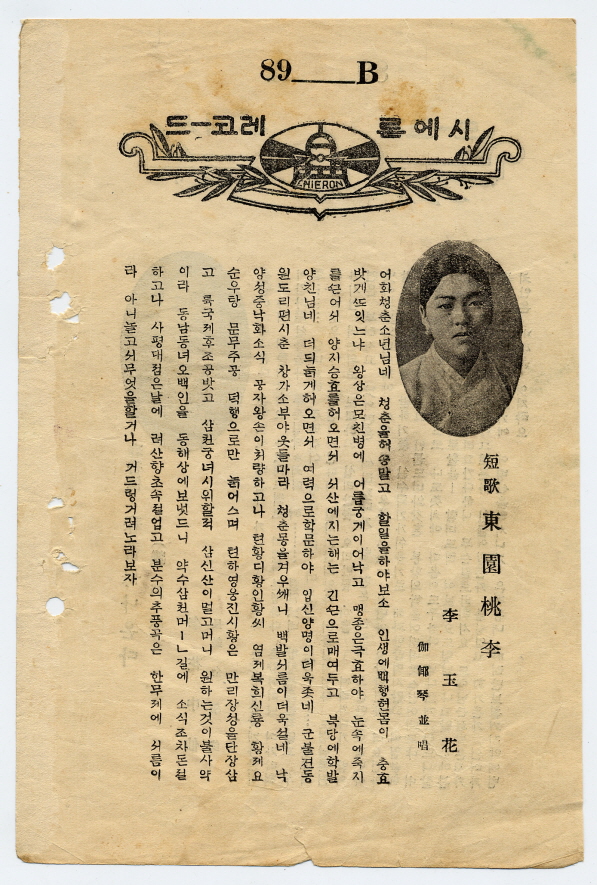 89____B
시에론 레코ー드
CHIERON
短歌 東園桃李
李玉花
伽倻琴並唱
어화청춘소년님네 청춘을허송말고 할일을하야보소 인생에백행현몸이 충효
밧게또잇느냐 왕상은모친병에 어름궁게이어낙고 맹종은극효하야 눈속에죽지
를끈어서 양지승효를허오면서 서산에지는해는 긴끈으로매여두고 북당에학발
양친님네 더듸늙게허오면서 여력으로학문하야 입신양명이더욱좃네 군불견동
원도리편시춘 창가소부야웃들마라 청춘몽을겨우깨니 백발서름이더욱설네 낙
양성중낙화소식 공자왕손이처량하고나 텬황디황인황씨 염제복희신룡 황제요
순우탕 문무주공 덕행으로만 늙어스며 텬하영웅진시황은 만리장성을단장삼
고 륙국제후조공밧고 삼천궁녀시위할적 삼신산이멀고머니 원하는것이불사약
이라 동남동녀오백인을 동해상에보냇드니 약수삼천머ーㄴ길에 소식조차돈절
하고나 사평대점은날에 려산향초속절업고 분수의추풍곡은 한무제에 서름이
라 아니놀고서무엇을할거나 거드렁거려노라보자